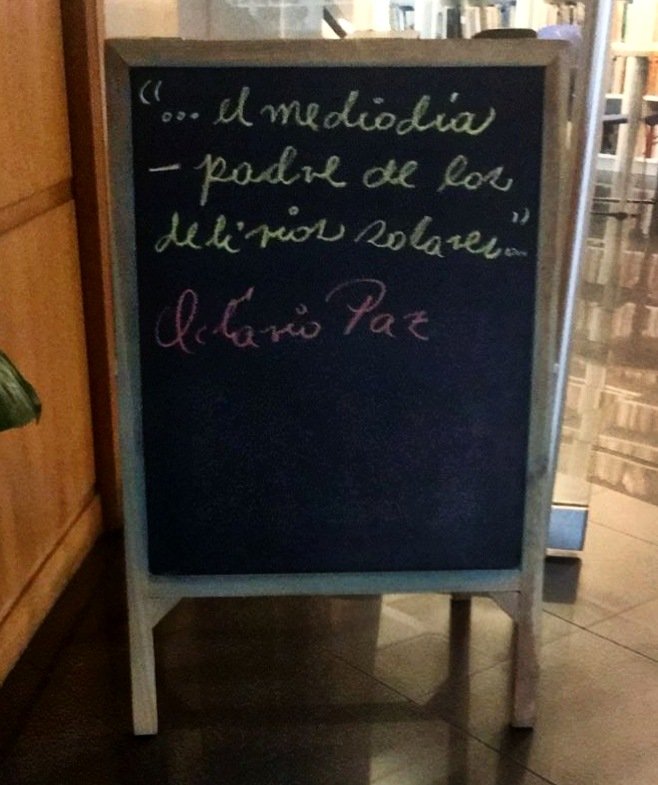 "... el mediodía
– padre de los
delirios solares..."
Octavio Paz